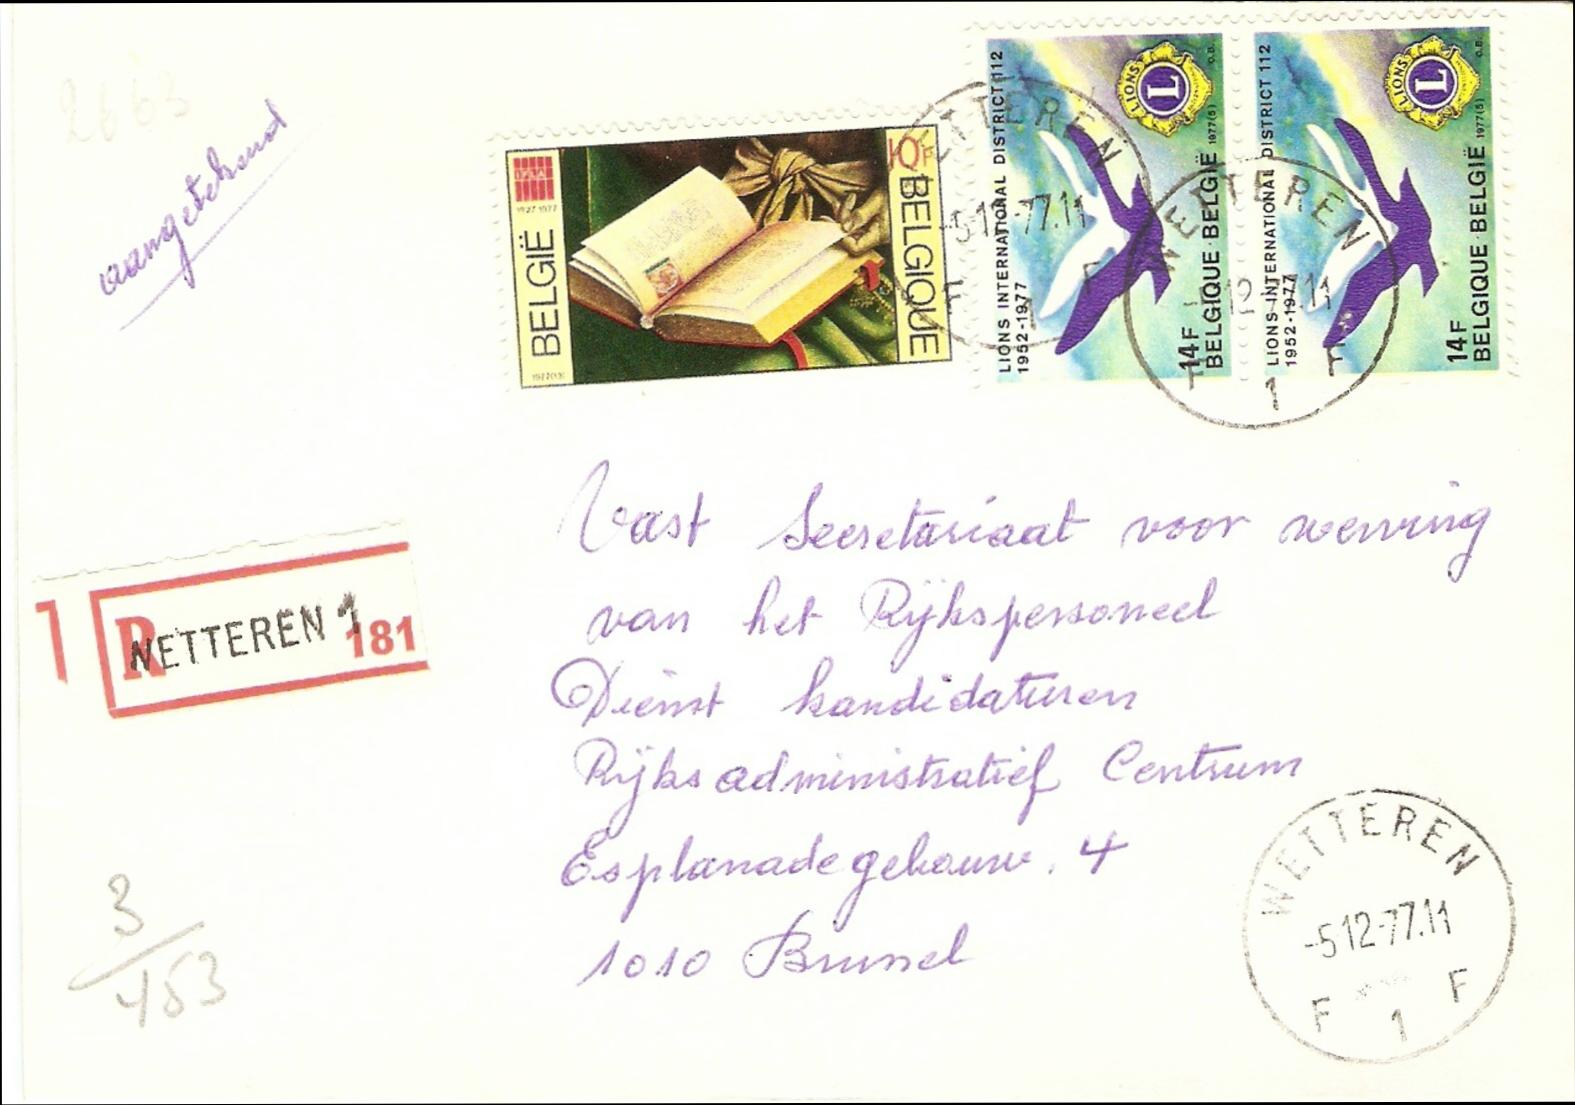 2663
aangetekend
IFLA
1927 1977
BELGIË
1977(9)
10F
BELGIQUE
LIONS INTERNATIONAL DISTRICT 112
1952-1977
LIONS
L
INTERNATIONAL
14F
BELGIQUE·BELGIË
1977(5)
O.B.
LIONS INTERNATIONAL DISTRICT 112
1952-1977
LIONS
L
INTERNATIONAL
14F
BELGIQUE·BELGIË
1977(5)
O.B.
WETTEREN
-512-77.11
F 1 F
WETTEREN
-512-77.11
F 1 F
Vast Secretariaat voor werving
van het Rijkspersoneel
Dienst kandidaturen
Rijksadministratief Centrum
Esplanadegebouw. 4
1010 Brussel
R
WETTEREN 1
181
3
453
WETTEREN
-512-77.11
F 1 F